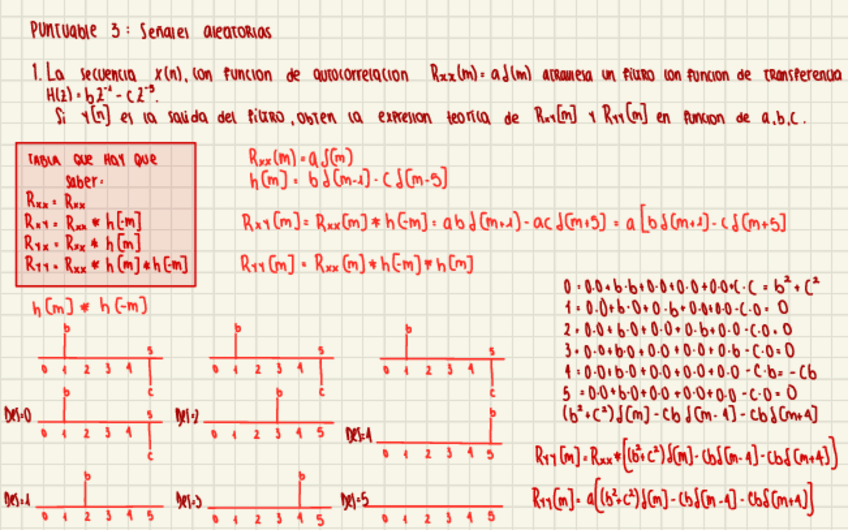 PUNTUABLE 3: Señales aleatorias
1. La secuencia x(n), con funcion de autocorrelacion Rxx(m) = aδ(m) atraviesa un filtro con funcion de transferencia
H(z) = bz⁻¹ - cz⁻⁵.
Si y[n] es la salida del filtro, obten la expresion teorica de Rxy[m] y Ryy[m] en funcion de a,b,c.
TABLA QUE HAY QUE
saber.
Rxx = Rxx
Rxy = Rxx * h[-m]
Ryx = Rxx * h[m]
Ryy = Rxx * h[m] * h[-m]
Rxx(m) = aδ(m)
h[m] = bδ[m-1] - cδ[m-5]
Rxy[m] = Rxx[m] * h[-m] = abδ[m+1] - acδ[m+5] = a[bδ[m+1] - cδ[m+5]
Ryy[m] = Rxx[m] * h[-m] * h[m]
h[m] * h[-m]
b
0 1 2 3 4 5
c
b
0 1 2 3 4 5
c
b
0 1 2 3 4 5
c
Des=0
b
0 1 2 3 4 5
c
Des=2
b
0 1 2 3 4 5
Des=4
b
0 1 2 3 4 5
Des=1
b
0 1 2 3 4 5
Des=3
b
0 1 2 3 4 5
Des=5
0 1 2 3 4 5
0 = 0·0+b·b+0·0+0·0+0·0+c·c = b²+c²
1 = 0·0+b·0+0·b+0·0+0·0-c·0 = 0
2 = 0·0+b·0+0·0+0·b+0·0-c·0 = 0
3 = 0·0+b·0+0·0+0·0+0·b-c·0 = 0
4 = 0·0+b·0+0·0+0·0+0·0-c·b = -cb
5 = 0·0+b·0+0·0+0·0+0·0-c·0 = 0
(b²+c²)δ[m] - cbδ[m-4] - cbδ[m+4]
Ryy[m] = Rxx * [(b²+c²)δ[m] - cbδ[m-4] - cbδ[m+4]]
Ryy[m] = a[(b²+c²)δ[m] - cbδ[m-4] - cbδ[m+4]]